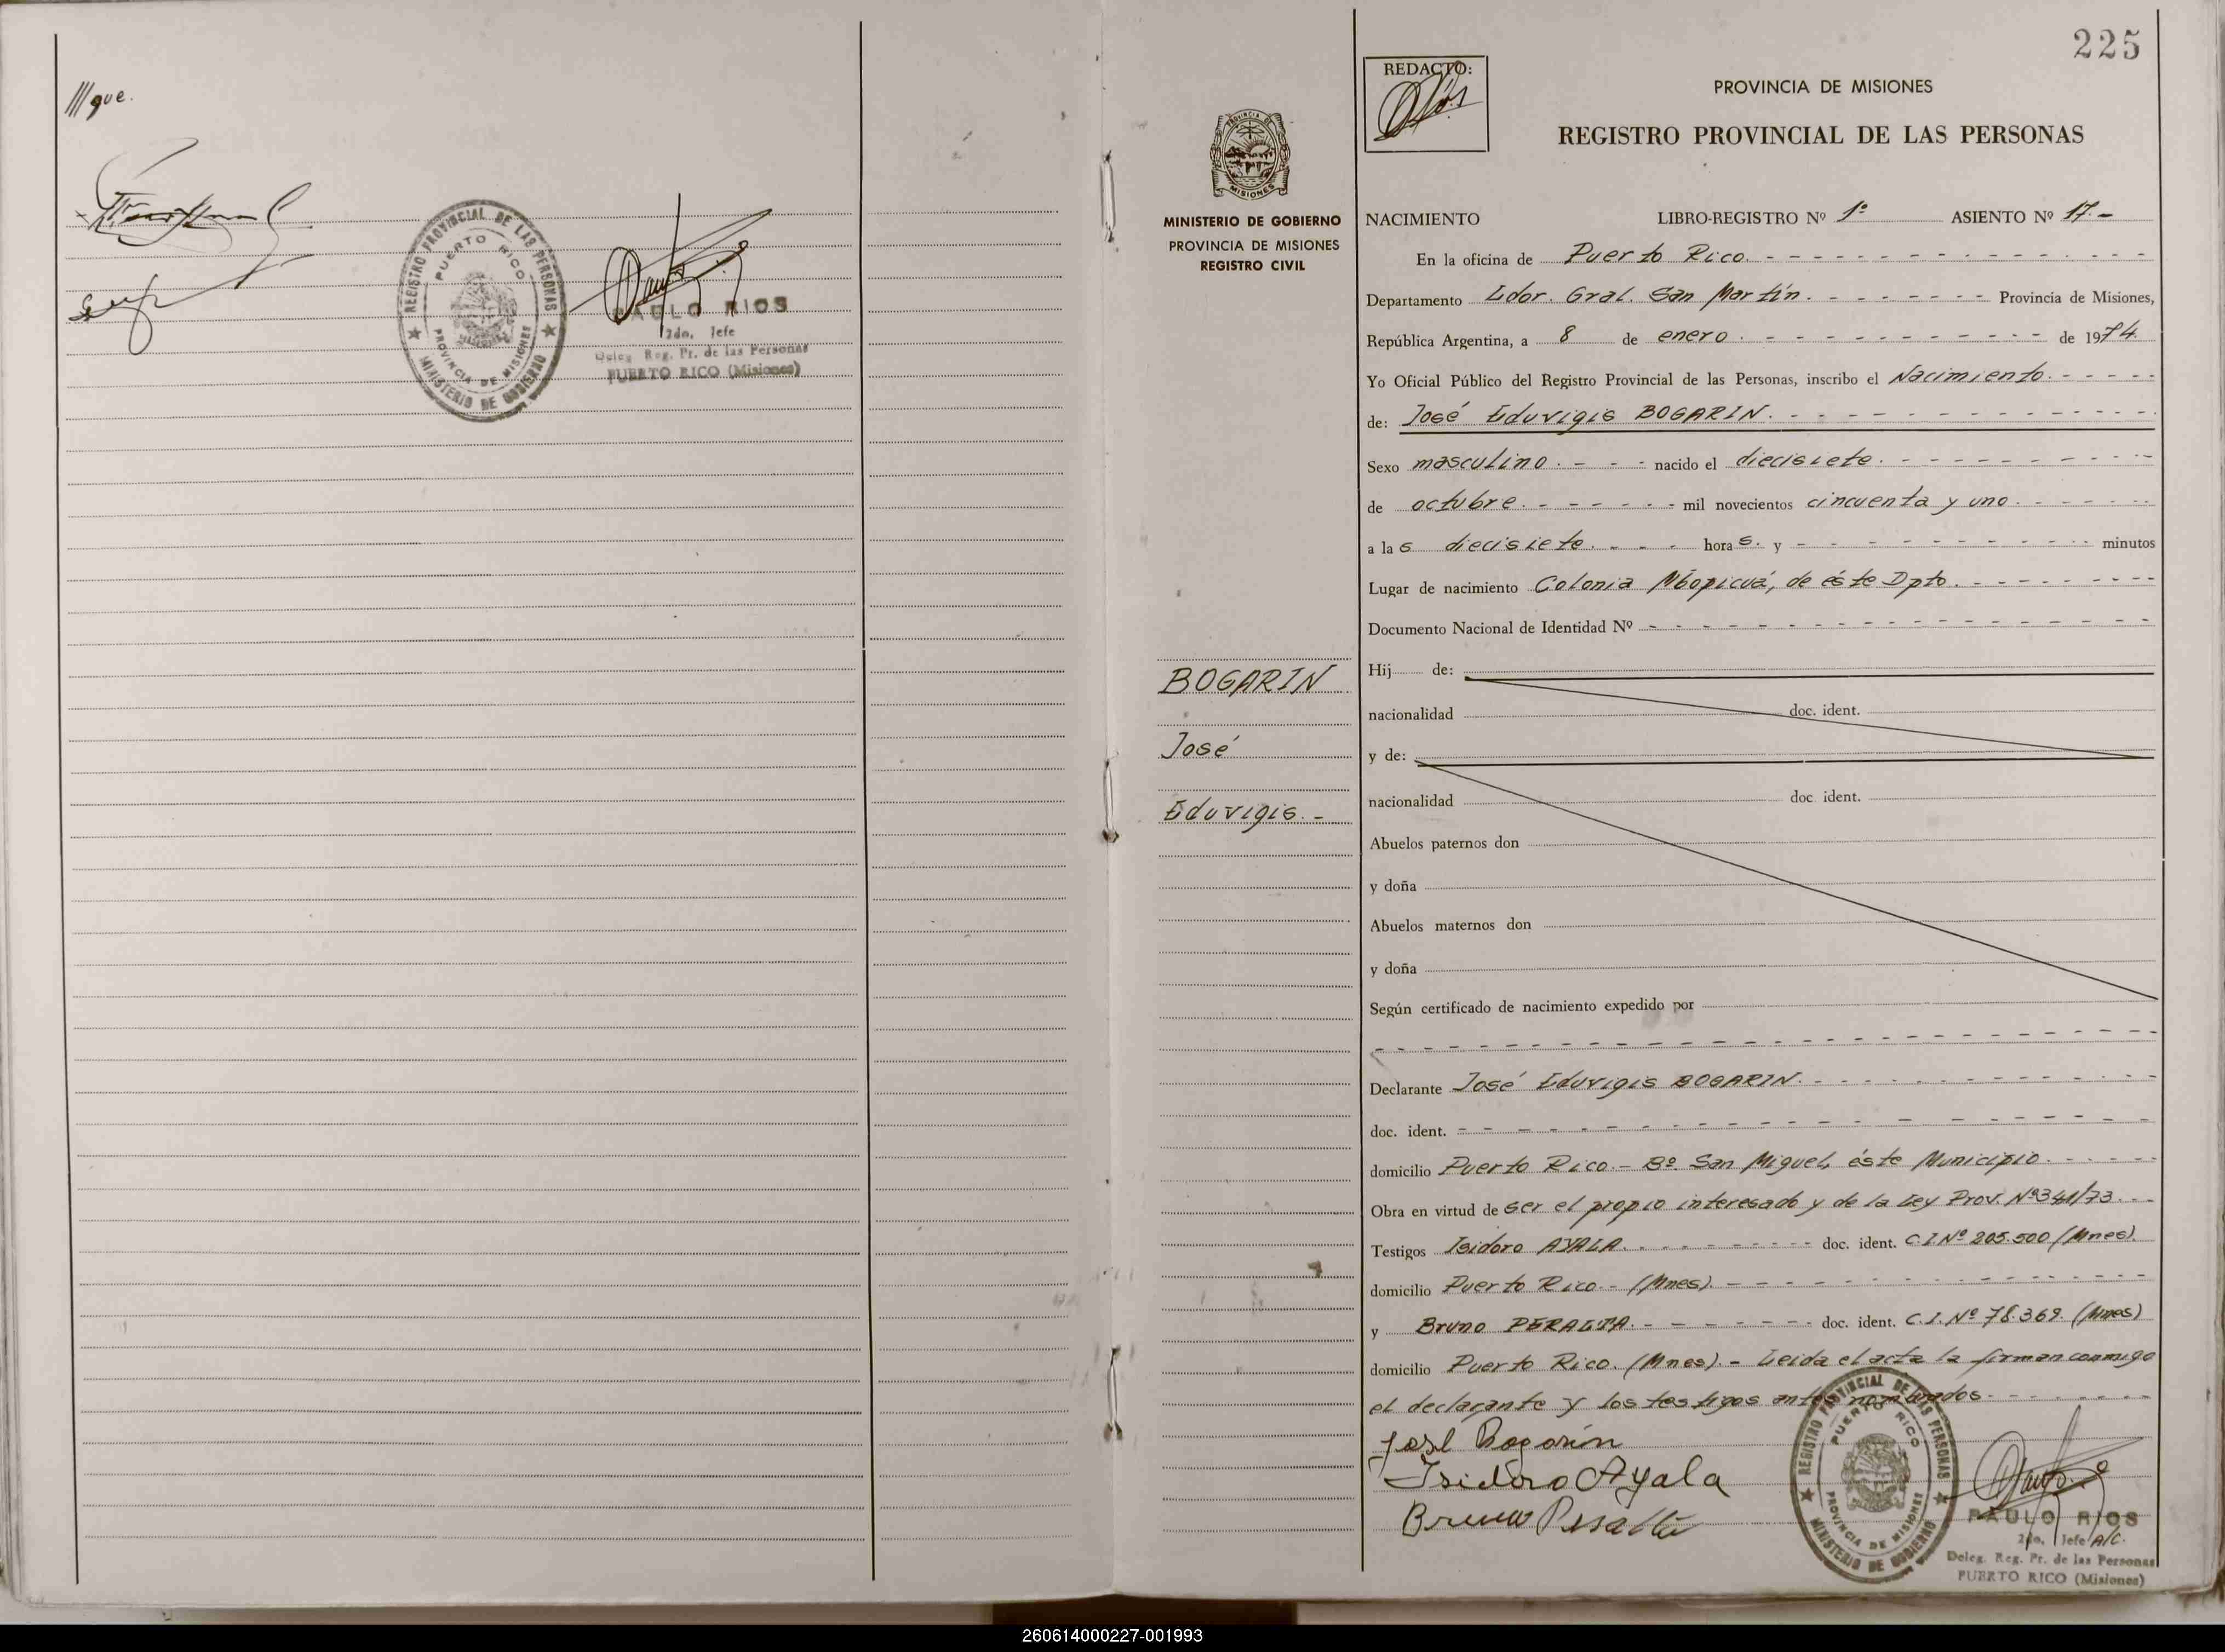 ///que.
REGISTRO PROVINCIAL DE LAS PERSONAS
PUERTO RICO
PROVINCIA DE MISIONES
MINISTERIO DE GOBIERNO
PAULO RIOS
2do. Jefe
Deleg. Reg. Pr. de las Personas
PUERTO RICO (Misiones)
225
REDACTO:
PROVINCIA DE MISIONES
REGISTRO PROVINCIAL DE LAS PERSONAS
PROVINCIA DE
MISIONES
MINISTERIO DE GOBIERNO
PROVINCIA DE MISIONES
REGISTRO CIVIL
NACIMIENTO LIBRO-REGISTRO Nº 1º ASIENTO Nº 17.-
En la oficina de Puerto Rico.
Departamento Ldor. Gral. San Martín. Provincia de Misiones,
República Argentina, a 8 de enero. de 1974.
Yo Oficial Público del Registro Provincial de las Personas, inscribo el Nacimiento.
de: José Eduvigis BOGARIN.
Sexo masculino. nacido el diecisiete.
de octubre. mil novecientos cincuenta y uno.
a las diecisiete. horas. y minutos
Lugar de nacimiento Colonia Mbopicuá, de éste Dpto.
Documento Nacional de Identidad Nº
BOGARIN
José
Eduvigis.-
Hij de:
nacionalidad doc. ident.
y de:
nacionalidad doc. ident.
Abuelos paternos don
y doña
Abuelos maternos don
y doña
Según certificado de nacimiento expedido por
Declarante José Eduvigis BOGARIN.
doc. ident.
domicilio Puerto Rico.- Bº San Miguel, éste Municipio.
Obra en virtud de ser el propio interesado y de la Ley Prov. Nº341/73.
Testigos Isidoro AYALA. doc. ident. C.I.Nº 205.500 (Mnes).
domicilio Puerto Rico.- (Mnes).
y Bruno PERALTA. doc. ident. C.I. Nº 78.369. (Mnes)
domicilio Puerto Rico. (Mnes).- Leida el acta la firman conmigo
el declarante y los testigos antes nombrados.
José Bogarin
Isidoro Ayala
Bruno Peralta
REGISTRO PROVINCIAL DE LAS PERSONAS
PUERTO RICO
PROVINCIA DE MISIONES
MINISTERIO DE GOBIERNO
PAULO RIOS
2do. Jefe A/C.
Deleg. Reg. Pr. de las Personas
PUERTO RICO (Misiones)
260614000227-001993